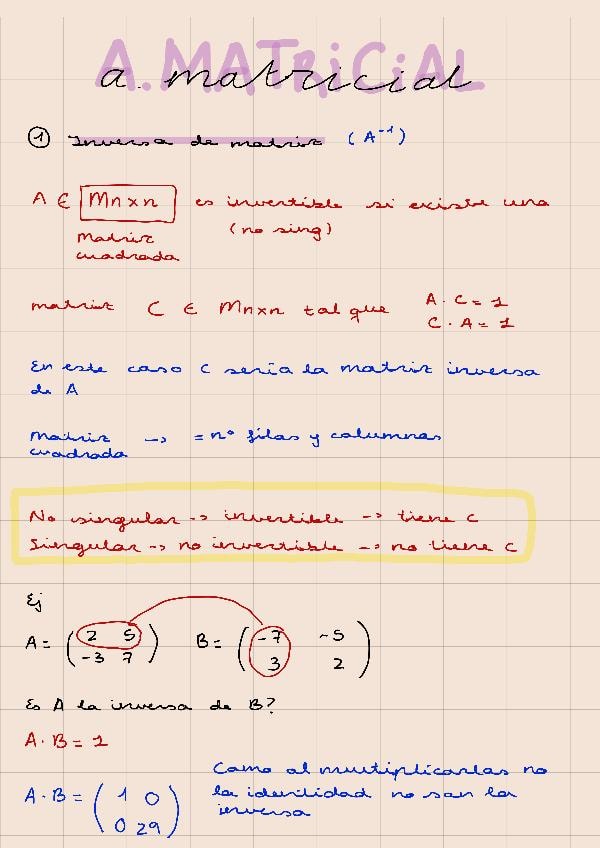 A.MATRiCiAL
a. matricial
① Inversa de matriz (A⁻¹)
A ∈ Mn×n es invertible si existe una
matriz cuadrada (no sing)
matriz C ∈ Mn×n tal que A · C = 1
C · A = 1
En este caso C sería la matriz inversa
de A
Matriz cuadrada -> = nº filas y columnas
No singular -> invertible -> tiene C
Singular -> no invertible -> no tiene C
Ej
A = ( 2 5 ) B = ( -7 -5 )
( -3 7 ) ( 3 2 )
Es A la inversa de B?
A · B = 1
A · B = ( 1 0 )
( 0 29 )
Como al multiplicarlas no
la identidad no san la
inversa